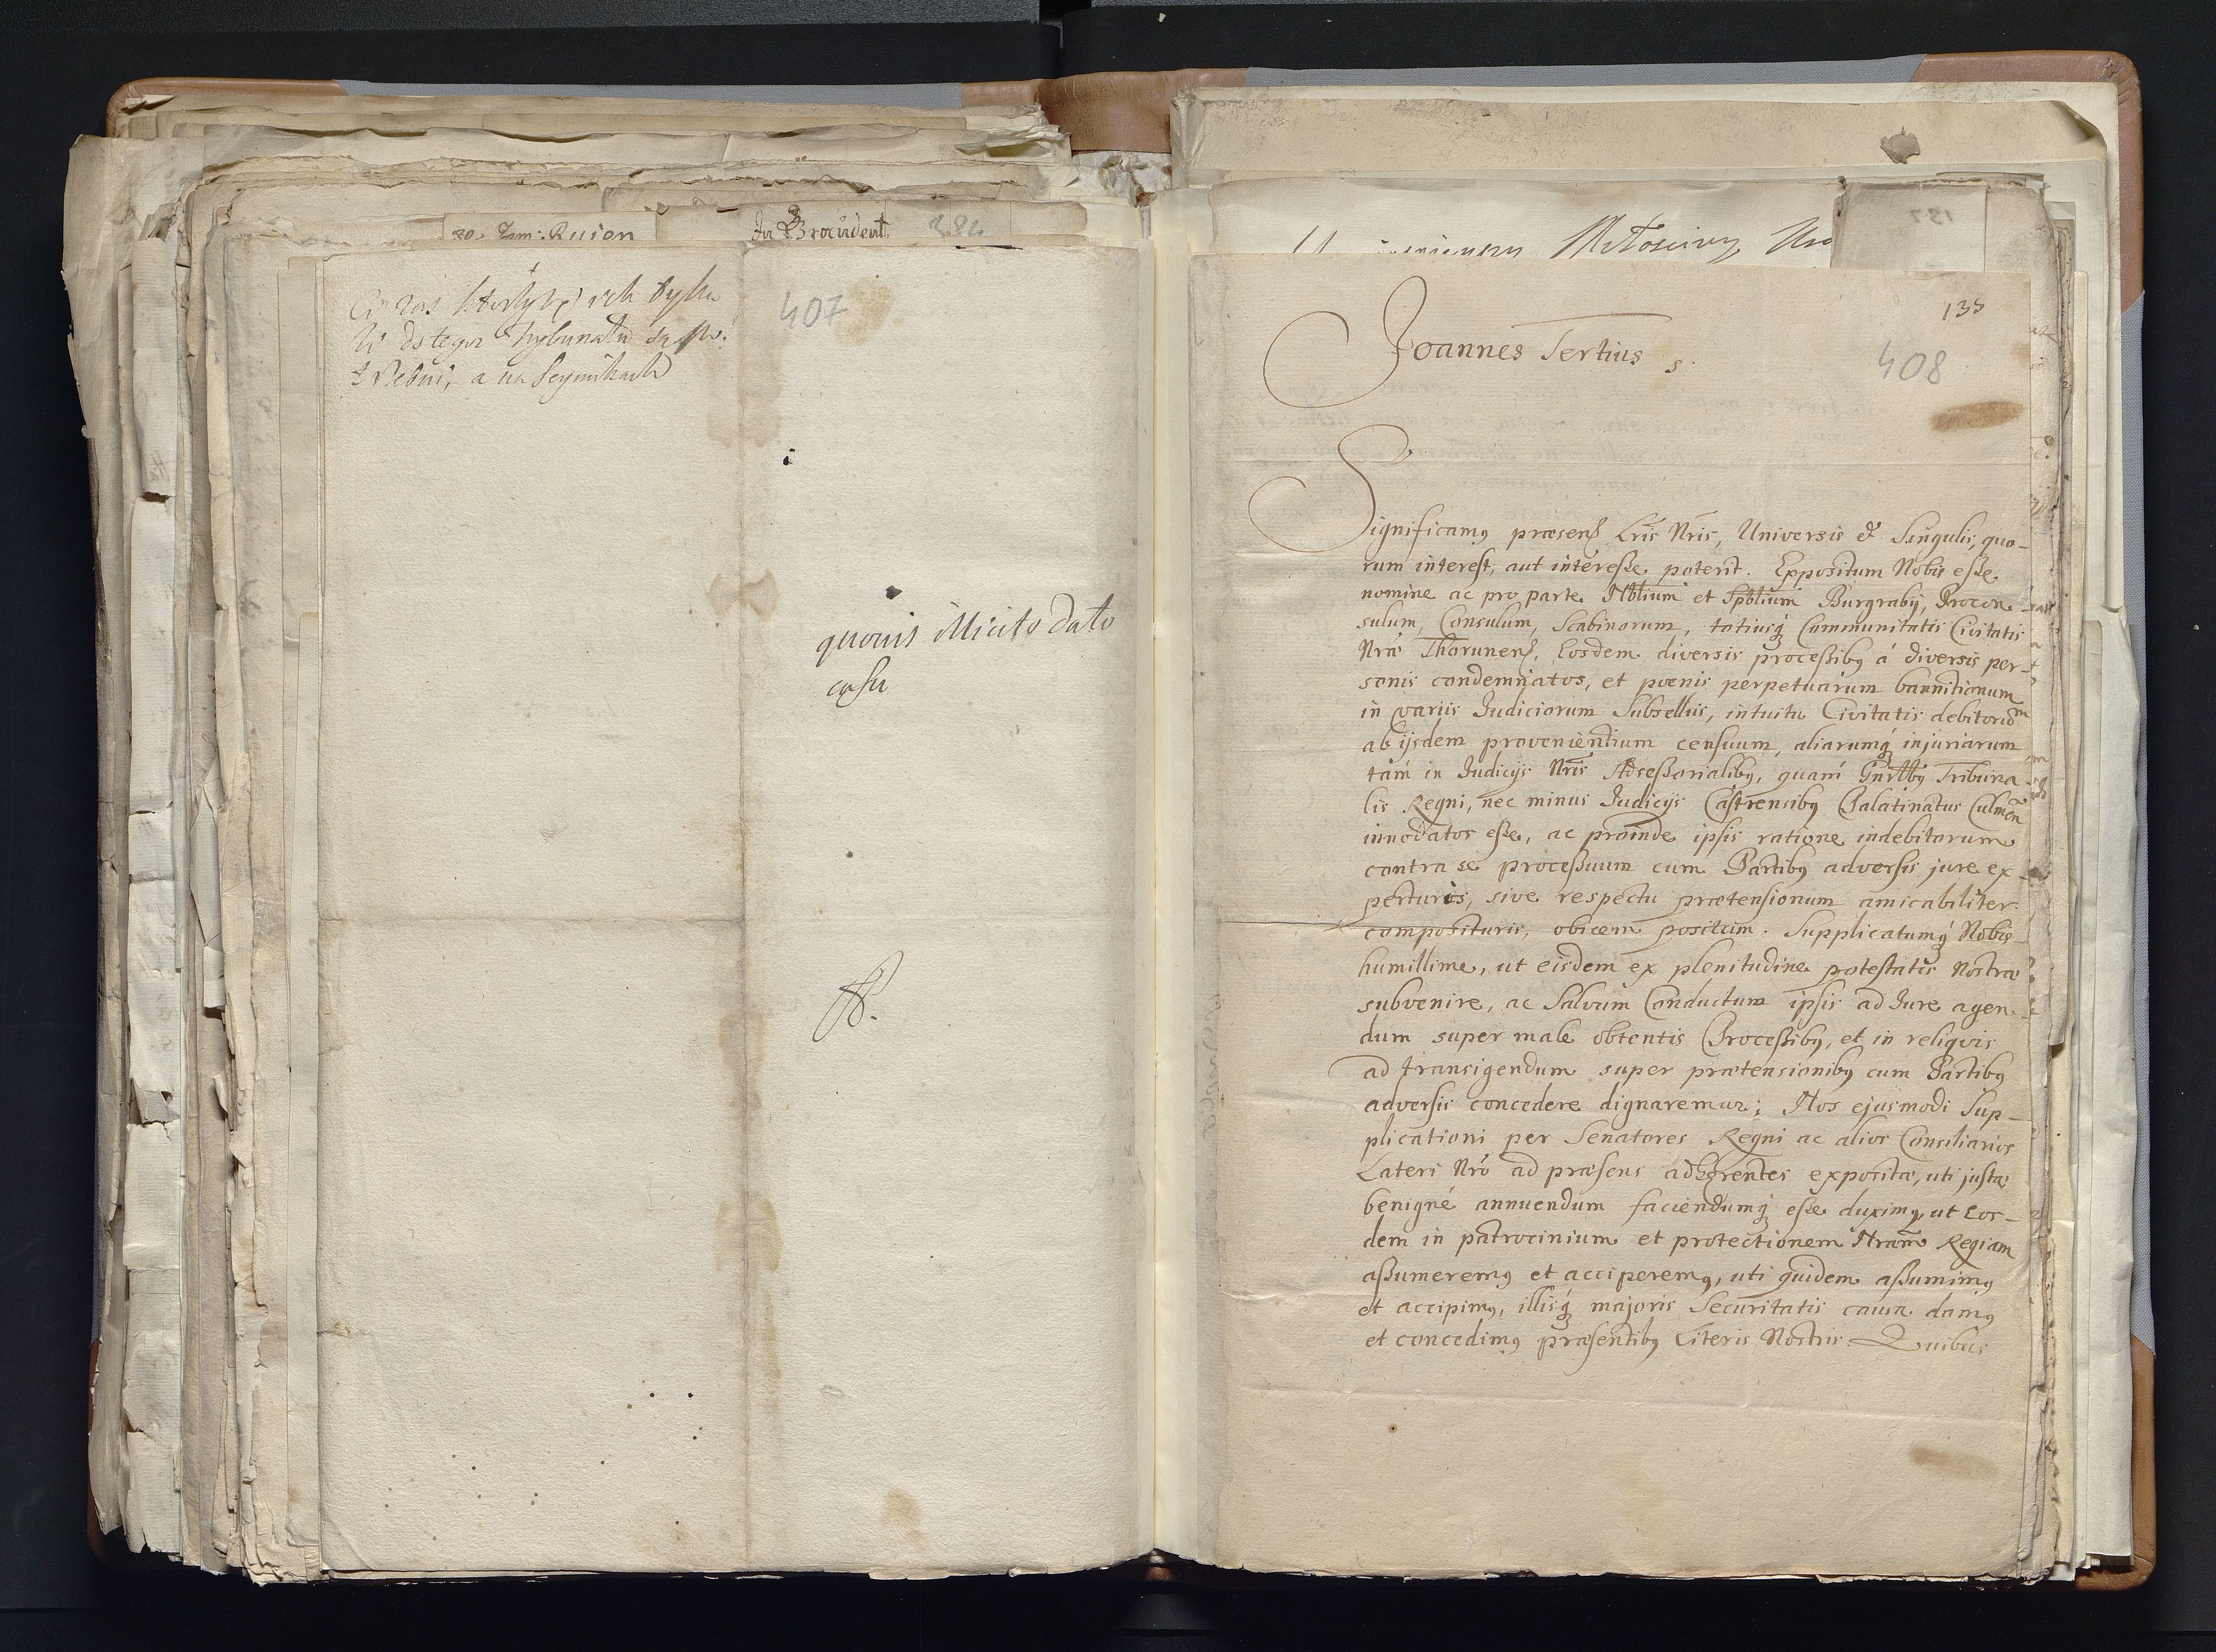 30. Jam: Ruien
In Provident
384
a na Seymikach
407
quovis illicito dato
casu
133
408
Joannes Tertius
Significamꝰ præsenß Lris Nris, Universis & Singulis, quo-
rum interest, aut interesse poterit. Expositum Nobis esse
nomine ac pro parte Nblium et Spblium Burgrabij, Procon-
sulum, Consulum, Scabinorum, totiusq Communitatis Civitatis
Nræ Thorunenß, Eosdem diversis processibꝰ á diversis per-
sonis condemnatos, et pœnis perpetuarum bannitionum
in variis Judiciorum Subselliis, intuitu Civitatis debitorum
ab ijsdem provenientium censuum, aliarumq injuriarum
tám in Judicijs Nris Assessorialibꝰ, quam Gnrlbꝰ Tribuna-
lis Regni, nec minus Judicijs Castrensibꝰ Palatinatus Culmen
innodatos esse, ac proinde ipsis ratione indebitorum
contra se processuum cum Partibꝰ adversis jure ex-
perturis, sive respectu prætensionum amicabiliter
composituris, obicem positum. Supplicatumq Nobis
humillime, ut eisdem ex plenitudine potestatis Nostræ
subvenire, ac Salvum Conductum ipsis ad Jure agen-
dum super male obtentis Processibꝰ, et in reliqvis
ad transigendum super prætensionibꝰ cum Partibꝰ
adversis concedere dignaremur; Nos ejusmodi Sup-
plicationi per Senatores Regni ac alios Consiliarios
Lateri Nro ad præsens adhærentes expositæ, uti justæ
benigné annuendum faciendumq esse duximꝰ, ut Eos-
dem in patrocinium et protectionem Nram Regiam
assumeremꝰ et acciperemꝰ, uti quidem assumimꝰ
et accipimꝰ, illisq majoris Securitatis causa damꝰ
et concedimꝰ præsentibꝰ Literis Nostris. Quibus